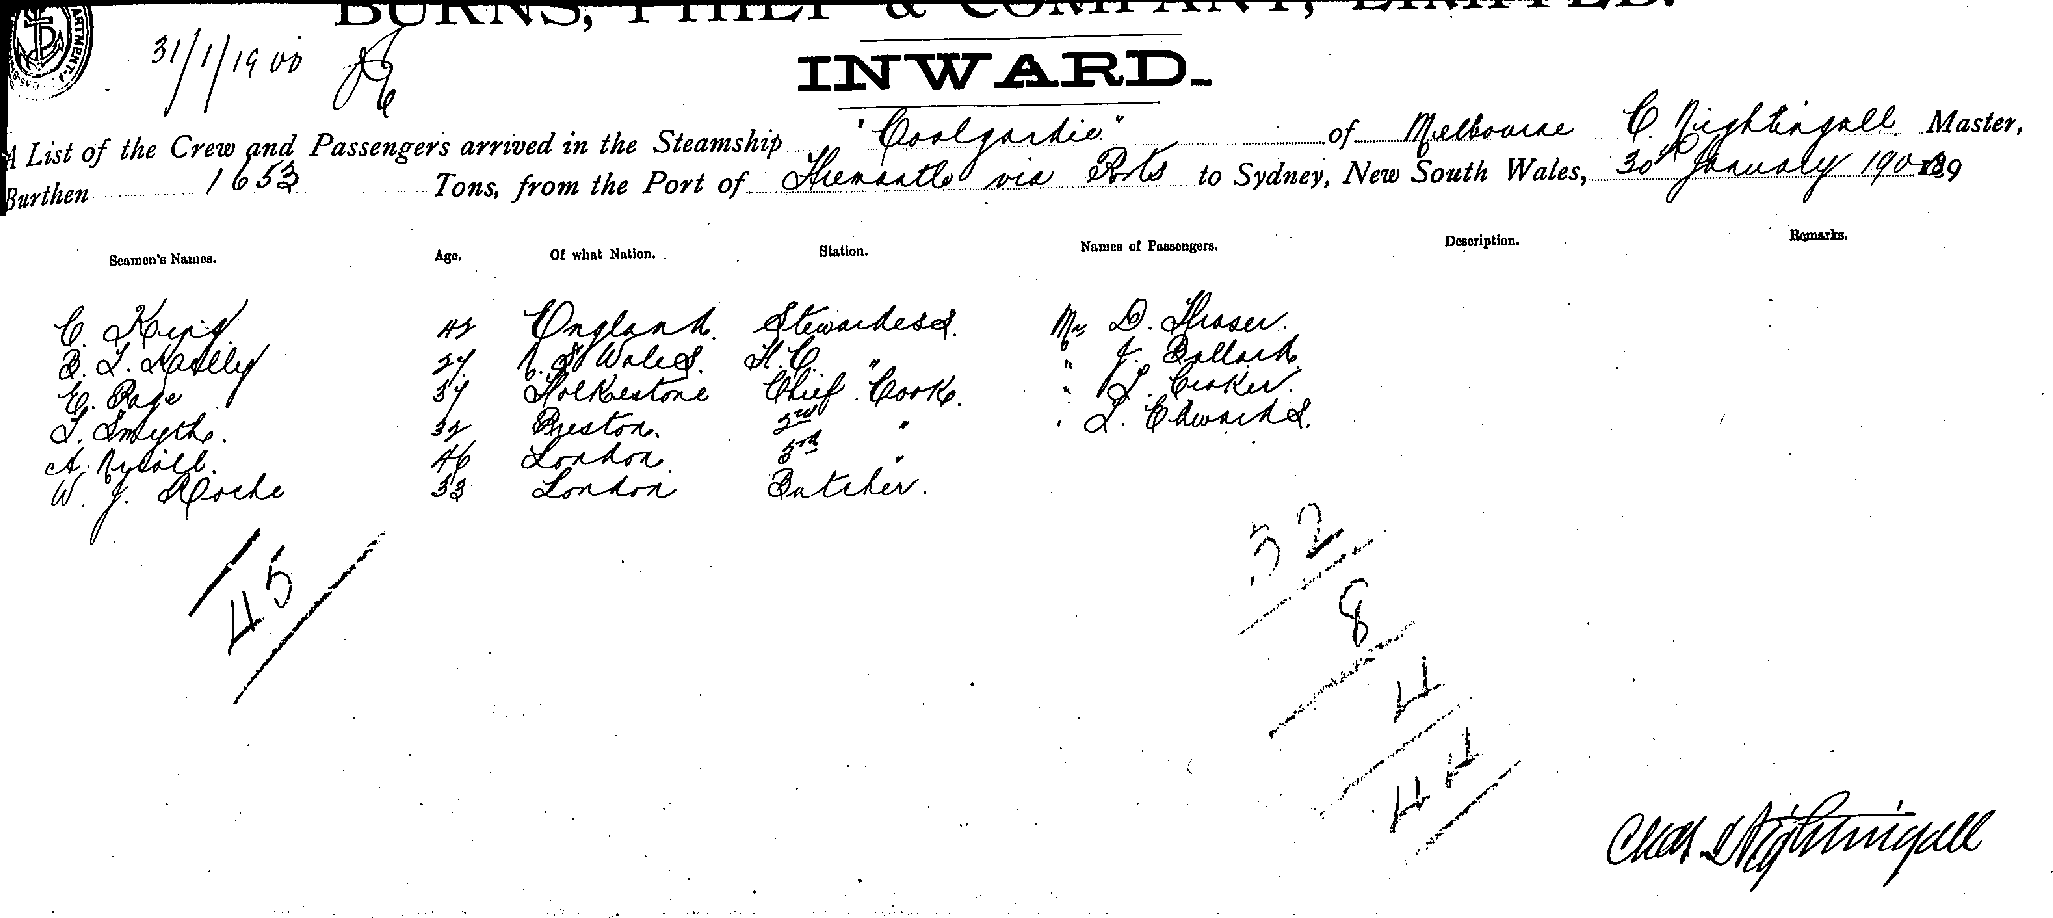 BURNS, PHILP & COMPANY, LIMITED.
31/1/1900
INWARD.
A List of the Crew and Passengers arrived in the Steamship "Coolgardie" of Melbourne C. Nightingall Master,
Burthen 1653 Tons, from the Port of Fremantle via Ports to Sydney, New South Wales, 30th January 1900 189
Seamen's Names. Age. Of what Nation. Station. Names of Passengers. Description. Remarks.
C. King 42 England. Stewardess. Mr D. Fraser.
B. T. 27 N. S. Wales. F. C. " " J. Pollard.
E. Page 37 Folkestone Chief Cook. " T. Croker.
T. Smyth. 32 Preston. 2nd " " L. Edwards.
A. 46 London. 3rd "
W. J. Roche 33 London Butcher.
45
32
8
4
44
Chas. Nightingall